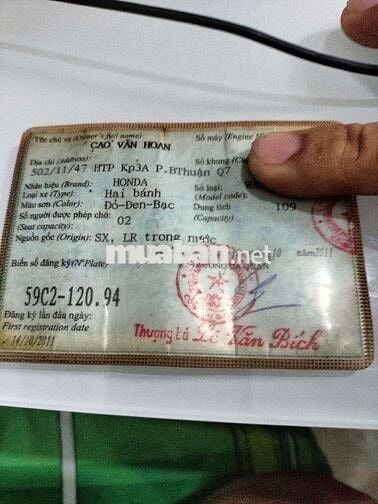 Tên chủ xe (Owner's full name): Số máy (Engine
CAO VĂN HOAN
Địa chỉ (Address): Số khung
502/11/47 HTP Kp3A P.BThuận Q7
Nhãn hiệu (Brand): HONDA Số loại:
Loại xe (Type): Hai bánh (Model code):
Màu sơn (Color): Đỏ-Đen-Bạc Dung tích 109
Số người được phép chở: 02 (Capacity)
(Seat capacity)
Nguồn gốc (Origin): SX, LR trong nước
10 năm 2011
muaban.net
Biển số đăng ký (N°Plate)
59C2-120.94
Đăng ký lần đầu ngày:
First registration date
14/10/2011
Thượng tá Lê Văn Bích